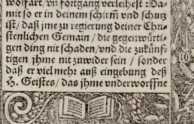 wolfart, vn fortgang verleihest: Da-
mit so er in deinem schirm vnd schutz
ist, daß jme zu regierung deiner Chri-
stenlichen Gemain, die gegenwürti-
gen ding nit schaden, vnd die zukünf-
tigen jhme nit zuwider sein / sonder
daß er viel mehr auß eingebung deß
H. Geistes, das jhme vnderworffne